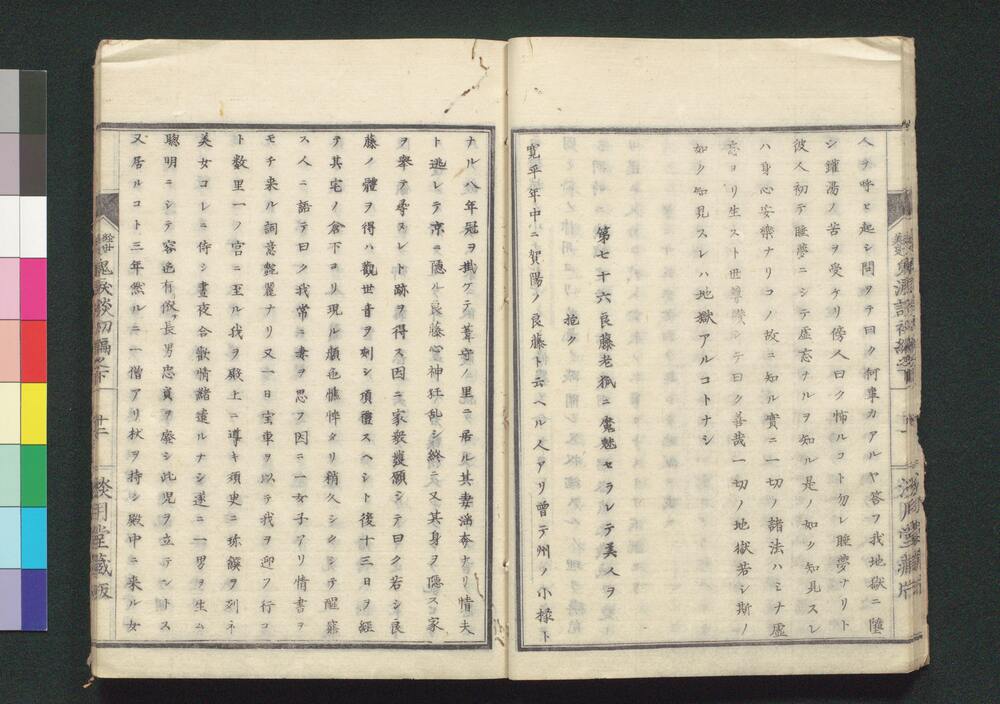 人ヲ呼ヒ起シ問フテ曰ク何事カアルヤ答フ我地獄ニ墮
シ鑊湯ノ苦ヲ受ケリ傍人曰ク怖ルコト勿レ睡夢ナリト
彼人初テ睡夢ニシテ虚妄ナルヲ知ル是ノ如ク知見スレ
ハ身心安樂ナリコノ故ニ知ル實ニ一切ノ諸法ハミナ虚
妄ヨリ生スト世尊讃シテ曰ク善哉一切ノ地獄若シ斯ノ
如ク知見スレハ地獄アルコトナシ
第七十六良藤老狐ニ魔魅セラレテ美人ヲ
抱ク
寛平年中ニ賀陽ノ良藤ト云ヘル人アリ曽テ州ノ小椽ト
ナル八年冠ヲ掛ケテ葦守ノ里ニ居ル其妻淫奔ナリ情夫
ト逃レテ京ニ隠ル良藤心神狂乱シ終ニ又其身ヲ隠ス家
ヲ舉テ尋スレト跡ヲ得ス因ニ家殺護願シテ曰ク若シ良
藤ノ體ヲ得ハ觀世音ヲ刻シ頂禮スヘシト後十三日ヲ経
テ其宅ノ倉下ヨリ現ル顔色憔悴タリ稍久シクシテ醒寤
ス人ニ語テ曰ク我常ニ妻ヲ思フ因ニ一女子アリ情書ヲ
モチ来ル詞意艶麗ナリ又一日宝車ヲ以テ我ヲ迎フ行コ
ト数里一ノ宮ニ至ル我ヲ殿上ニ導キ須臾ニ珎饌ヲ列ネ
美女コレニ侍シ晝夜合歓情諸遠ルナシ遂ニ一男ヲ生ム
聰明ニシテ容色有仮長男忠貞ヲ廢シ此児ヲ立テントス
又居ルコト三年然ルニ一僧アリ杖ヲ持シ殿中ニ来ル女
鬼神談初編巻下
十二
淡月堂蔵板